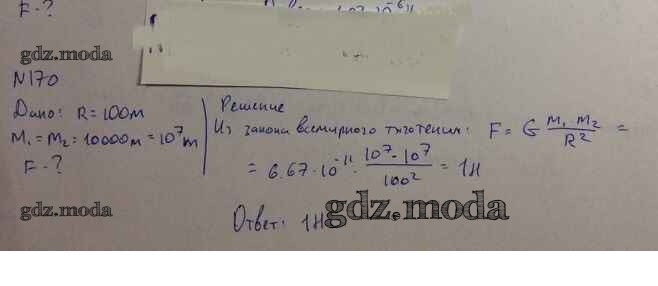 F-?
gdz.moda
N170
Дано: R=100м
M₁=M₂=10000т=10⁷т
F-?
Решение
Из закона всемирного тяготения: F = G M₁·M₂/R² =
= 6.67·10⁻¹¹· 10⁷·10⁷/100² = 1Н
gdz.moda
Ответ: 1Н
gdz.moda